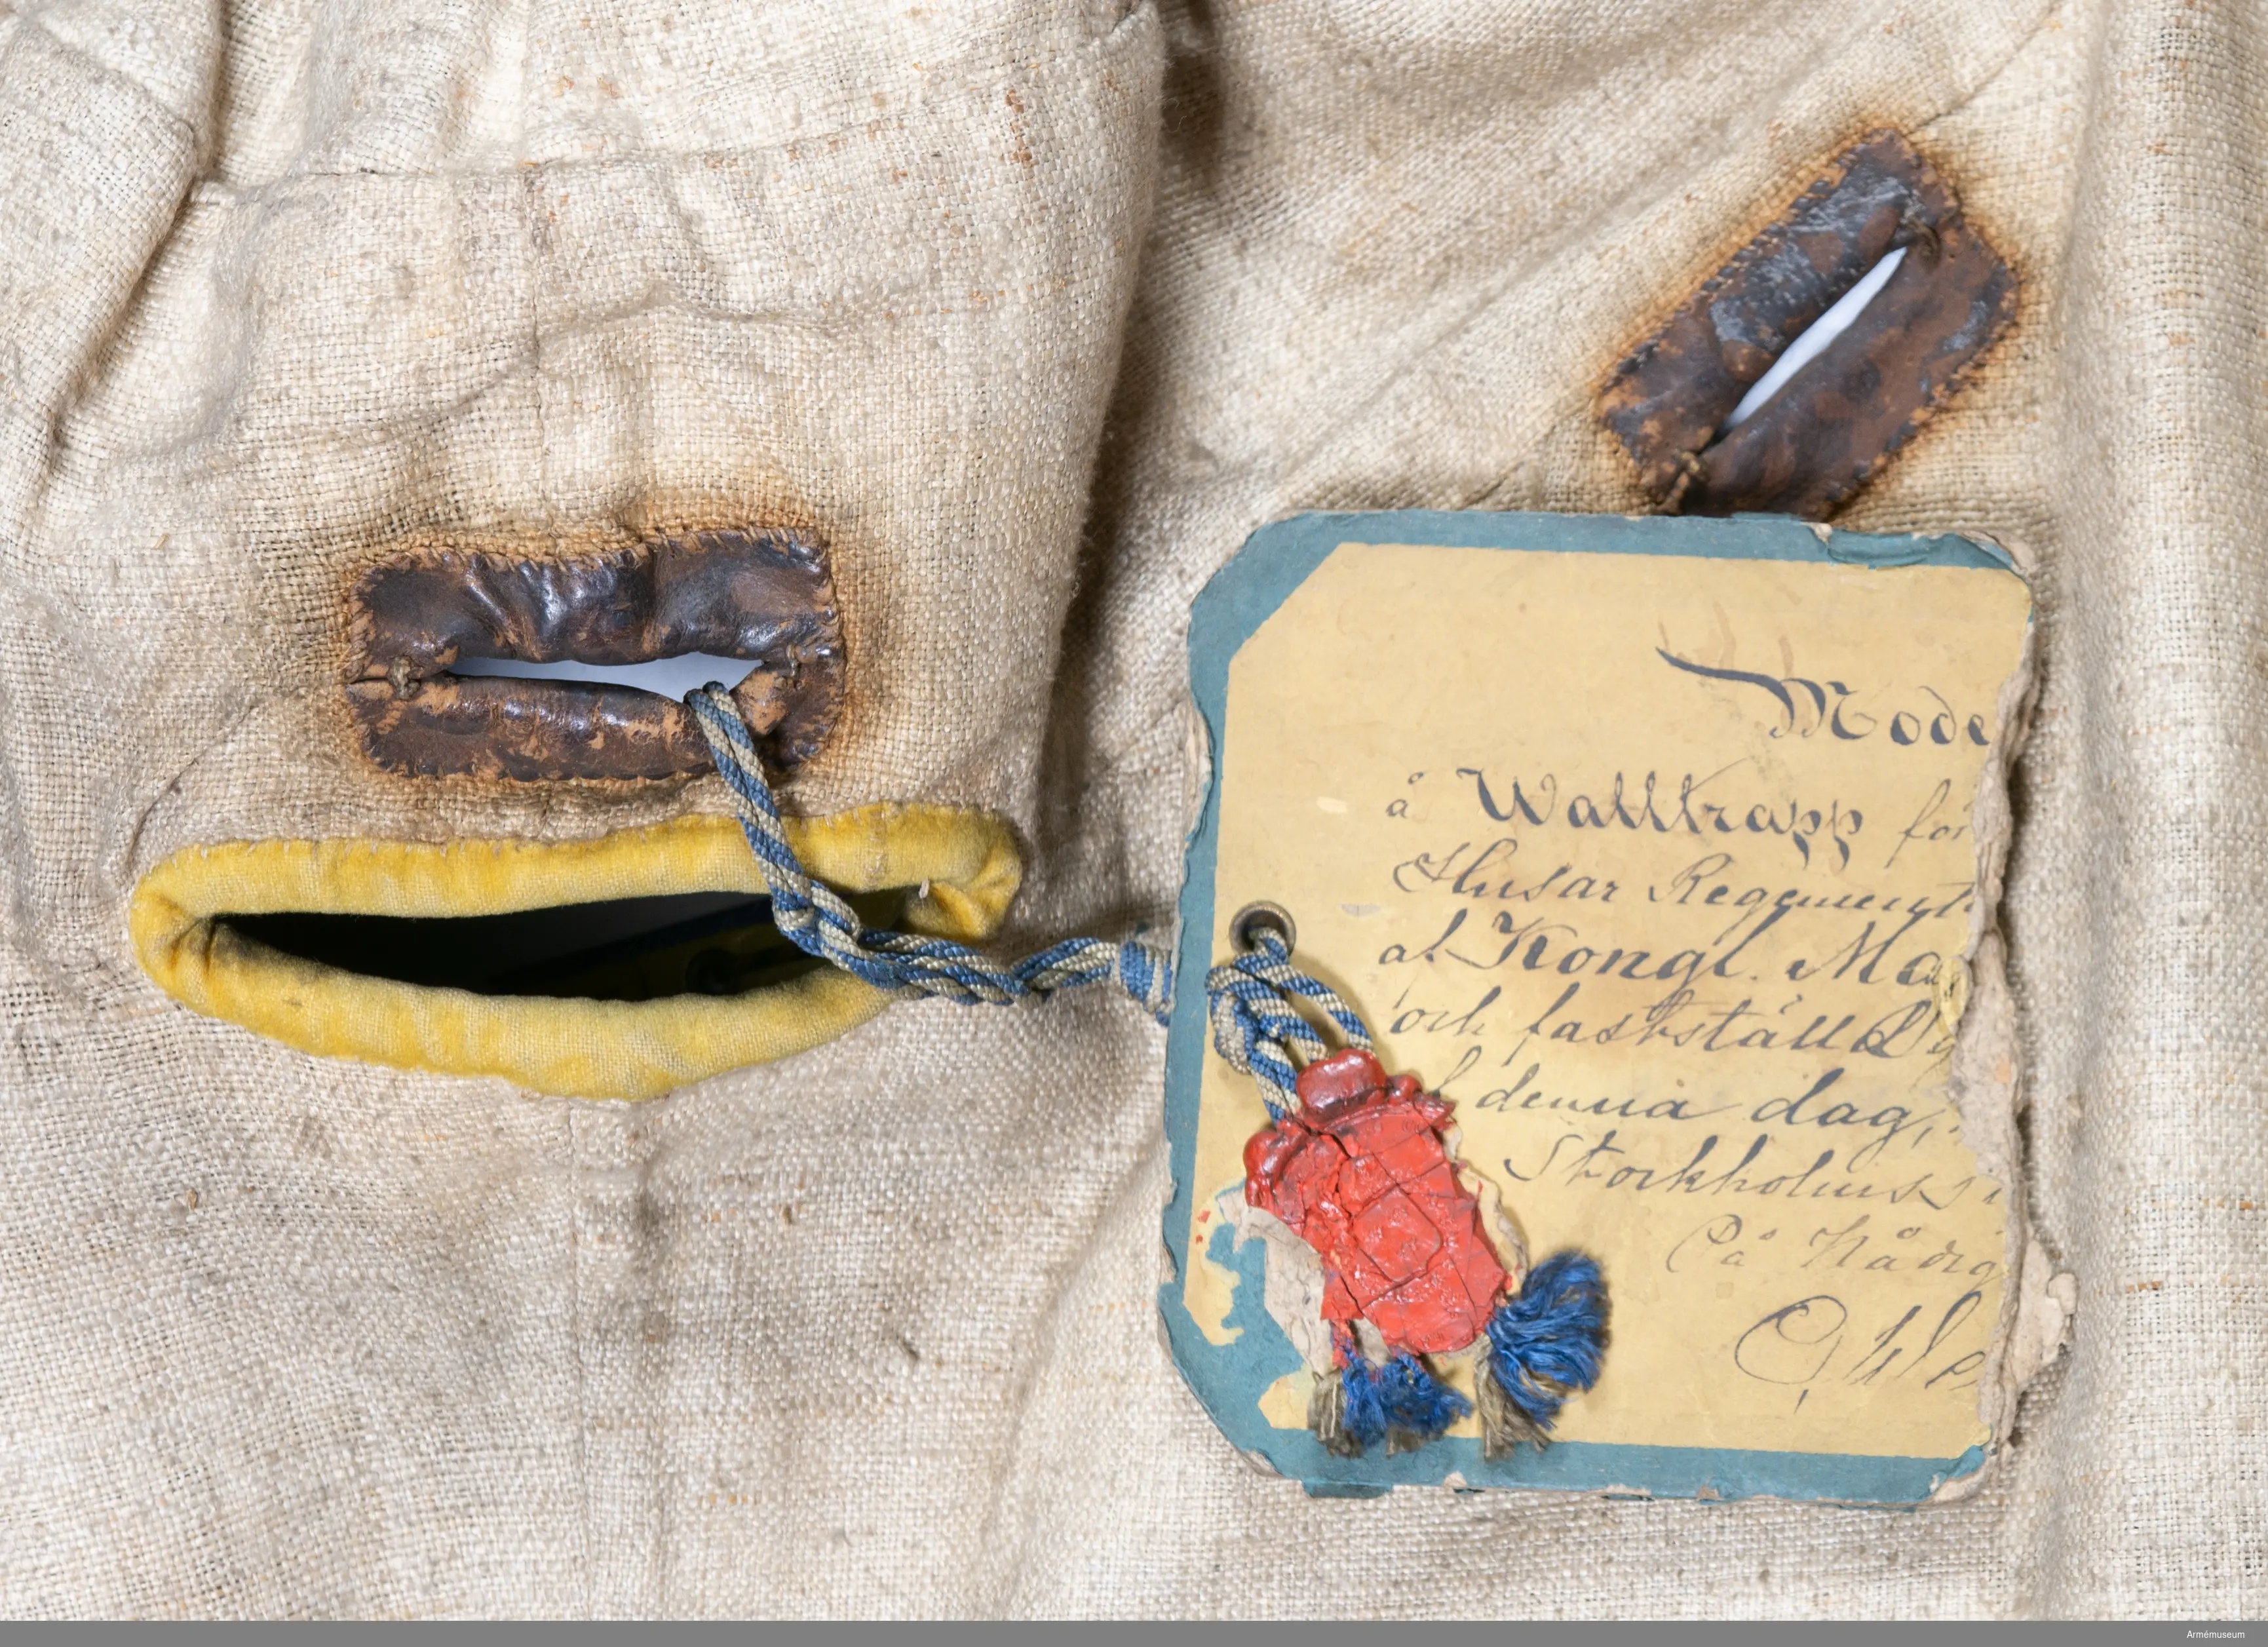 Mode
å Walltrapp för
Husar Regemente
af Kongl. Ma
och fastställd
denna dag,
Stockholms s
På Nådig
Armémuseum